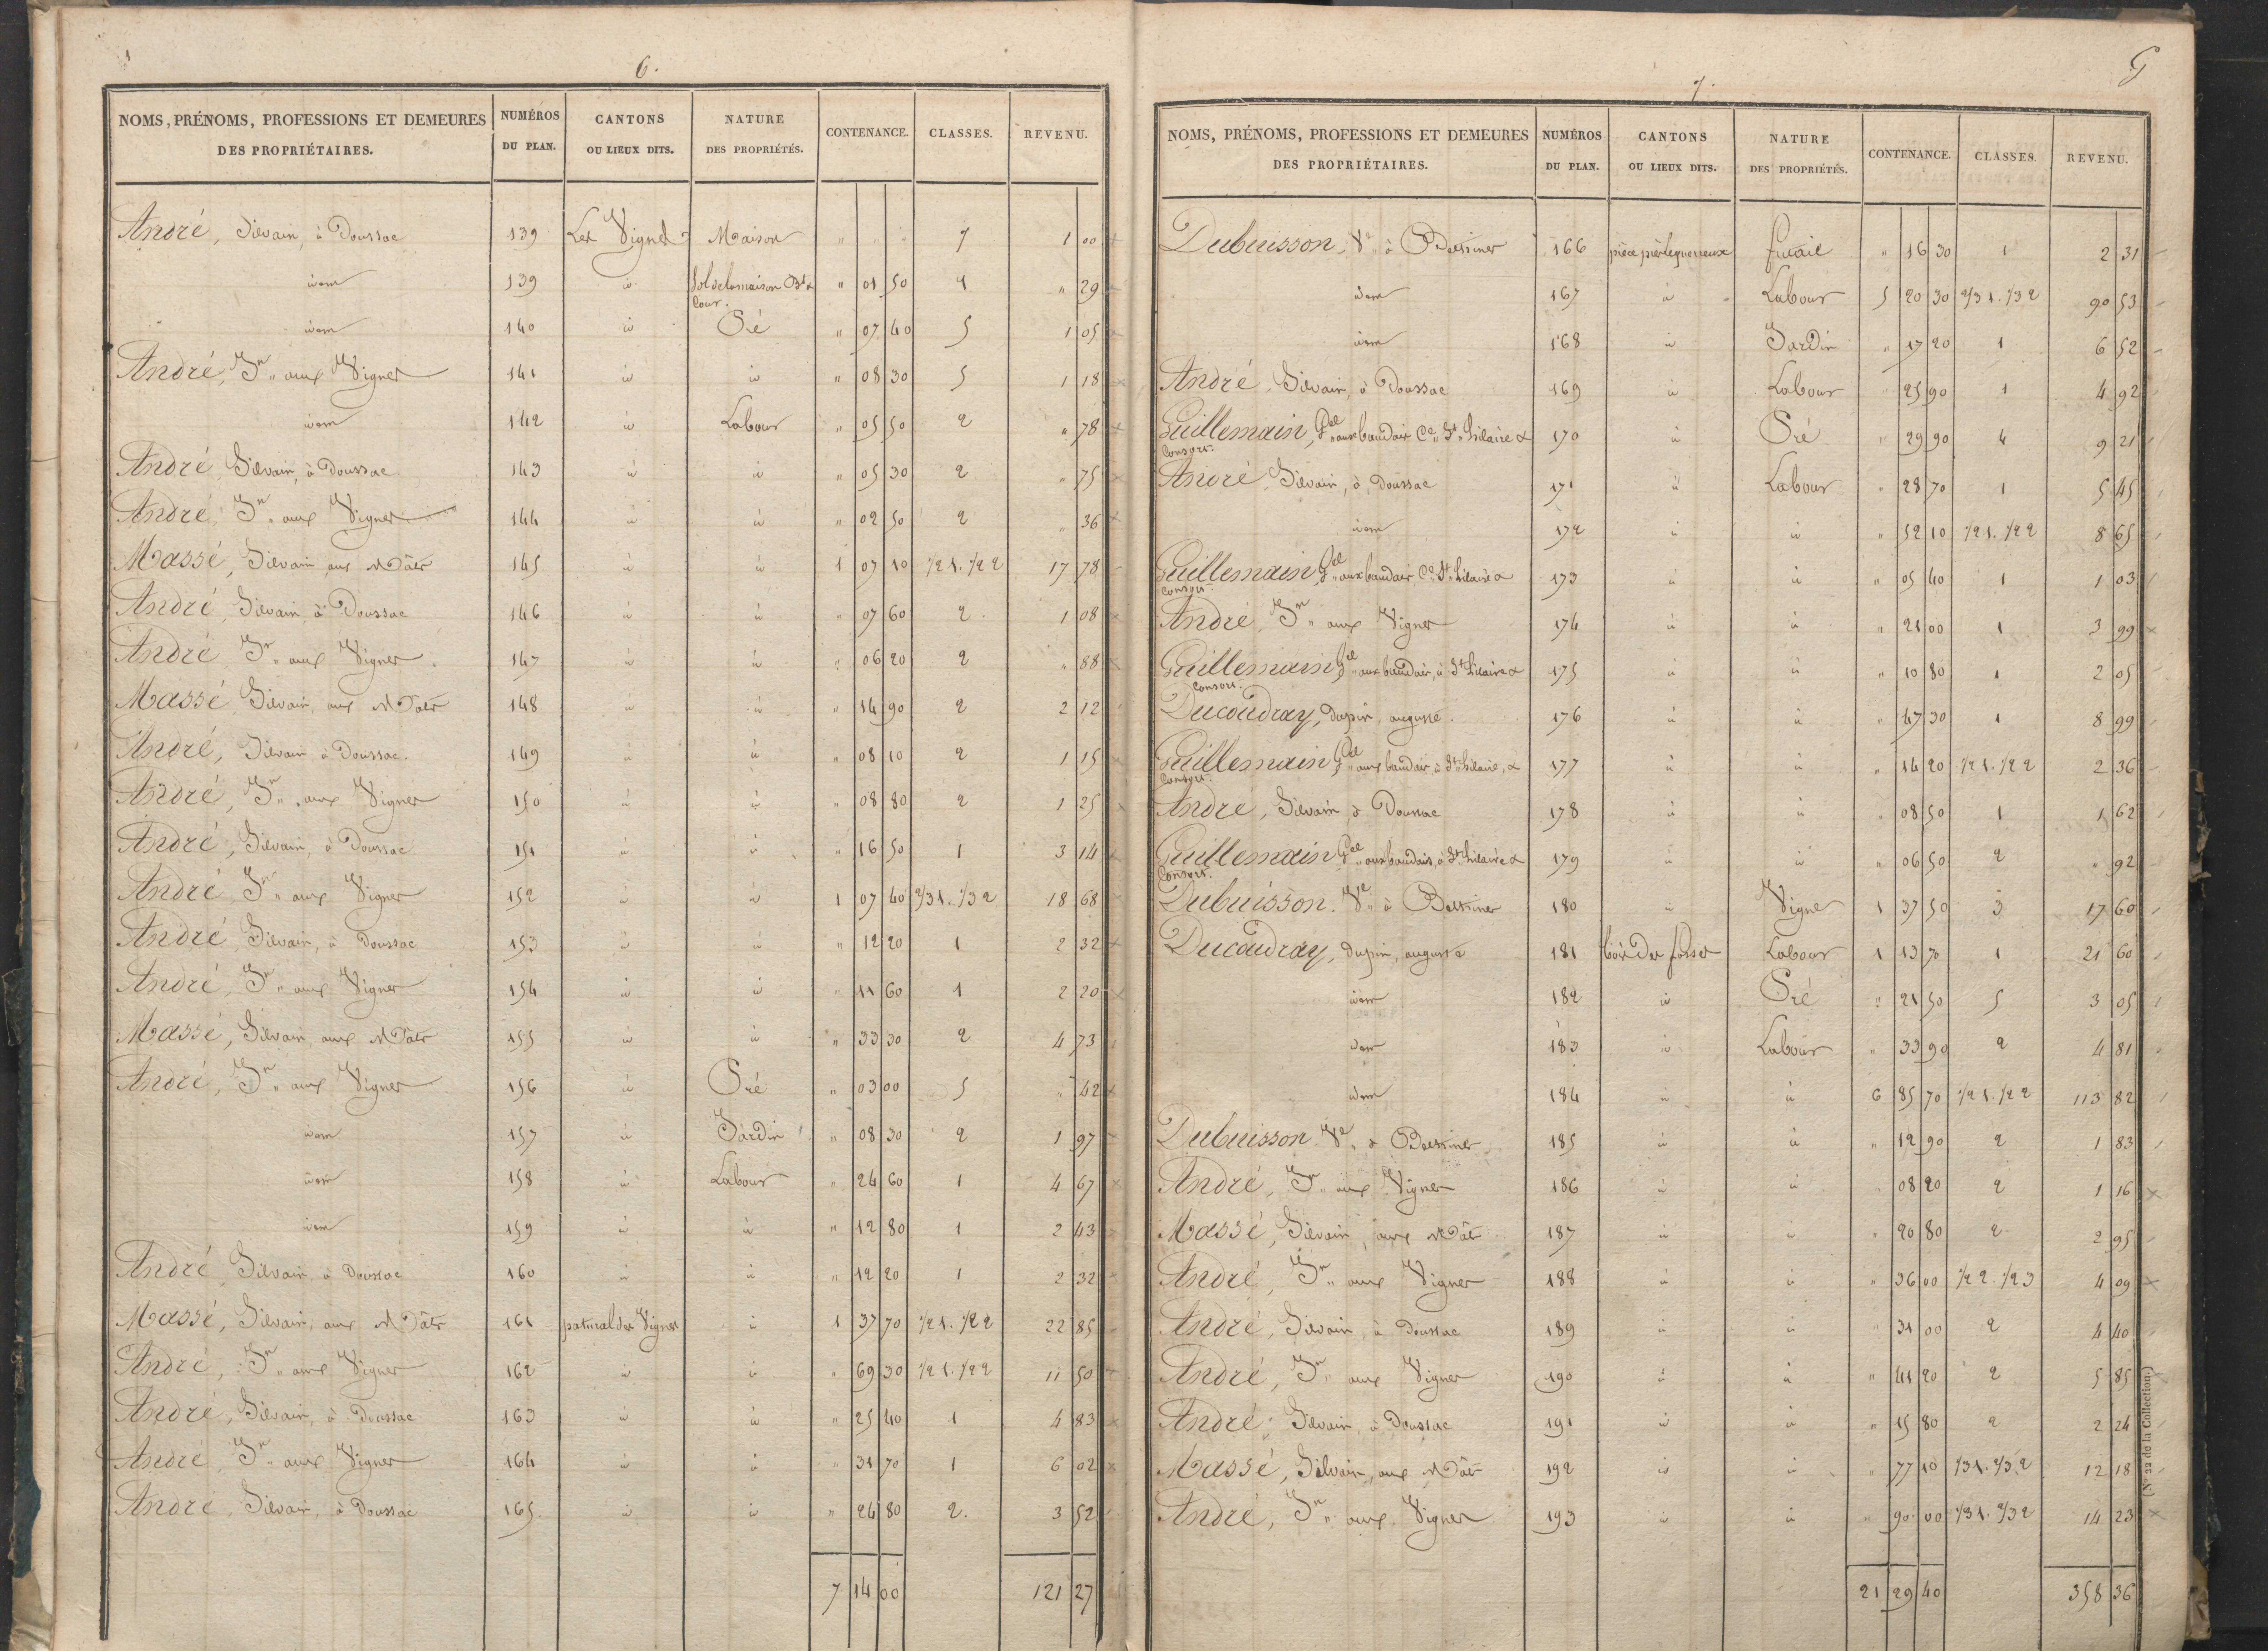 6.
NOMS, PRÉNOMS, PROFESSIONS ET DEMEURES DES PROPRIÉTAIRES. NUMÉROS DU PLAN. CANTONS OU LIEUX DITS. NATURE DES PROPRIÉTÉS. CONTENANCE. CLASSES. REVENU.
André, Silvain, à Doussac 139 Les Vignes Maison " " " 7 1 00
idem 139 id Sol de la maison Bt & Cour. " 01 50 1 " 29
idem 140 id Pré " 07 40 5 1 05
André, Jn aux Vignes 141 id id " 08 30 5 1 18
idem 142 id Labour " 05 50 2 " 78
André, Silvain, à Doussac 143 id id " 05 30 2 " 75
André, Jn aux Vignes 144 id id " 02 50 2 " 36
Massé, Silvain aux Mâts 145 id id 1 07 10 1/2 1. 1/2 2 17 78
André, Silvain, à Doussac 146 id id " 07 60 2. 1 08
André, Jn aux Vignes 147 id id " 06 20 2 " 88
Massé, Silvain, aux Mâts 148 id id " 14 90 2 2 12
André, Silvain, à Doussac. 149 id id " 08 10 2 1 15
André, Jn aux Vignes 150 id id " 08 80 2 1 25
André, Silvain, à Doussac 151 id id " 16 50 1 3 14
André, Jn aux Vignes 152 id id 1 07 40 2/3 1. 1/3 2 18 68
André, Silvain, à Doussac 153 id id " 12 20 1 2 32
André, Jn aux Vignes 154 id id " 11 60 1 2 20
Massé, Silvain, aux Mâts 155 id id " 33 30 2 4 73
André, Jn aux Vignes 156 id Pré " 03 00 5 " 42
idem 157 id Jardin " 08 30 2 1 97
idem 158 id Labour " 24 60 1 4 67
idem 159 id id " 12 80 1 2 43
André, Silvain, à Doussac 160 id id " 12 20 1 2 32
Massé, Silvain, aux Mâts 161 patural des Vignes id 1 37 70 1/2 1. 1/2 2 22 85
André, Jn aux Vignes 162 id id " 69 30 1/2 1. 1/2 2 11 50
André, Silvain, à Doussac 163 id id " 25 40 1 4 83
André, Jn aux Vignes 164 id id " 31 70 1 6 02
André, Silvain, à Doussac 165. id id " 24 80 2. 3 52
7 14 00 121 27
7.
NOMS, PRÉNOMS, PROFESSIONS ET DEMEURES DES PROPRIÉTAIRES. NUMÉROS DU PLAN. CANTONS OU LIEUX DITS. NATURE DES PROPRIÉTÉS. CONTENANCE. CLASSES. REVENU.
Dubuisson, Ve à 166 futaie " 16 30 1 2 31
idem 167 id Labour 5 20 30 2/3 1. 1/3 2 90 53
idem 168 id Jardin " 17 20 1 6 52
André, Silvain, à Doussac 169 id Labour 25 90 1 4 92
Guillemain, Gel aux baudais Ce St hilaire & Consors. 170 id Pré " 29 90 4 9 21
André, Silvain, à Doussac 171 id Labour " 28 70 1 5 45
idem 172 id id " 52 10 1/2 1. 1/2 2 8 65
Guillemain, Gel aux baudais Ce St hilaire & Consors. 173 id id " 05 40 1 1 03
André, Jn aux Vignes 174 id id " 21 00 1 3 99
Guillemain, Gel aux baudais, à St hilaire & Consors. 175 id id " 10 80 1 2 05
Ducoudray, dupin, auguste. 176 id id " 47 30 1 8 99
Guillemain, Gel aux baudais, à St hilaire, & Consors. 177 id id " 14 20 1/2 1. 1/2 2 2 36
André, Silvain, à Doussac 178 id id " 08 50 1 1 62
Guillemain, Gel aux baudais, à St hilaire & Consors. 179 id id " 06 50 2 " 92
Dubuisson. Ve à 180 id Vigne 1 37 50 3 17 60
Ducoudray, dupin, auguste 181 bois des fosses Labour 1 13 70 1 21 60
idem 182 id Pré " 21 50 5 3 05
idem 183 id Labour " 33 90 2 4 81
idem 184 id id 6 85 70 1/2 1. 1/2 2 113 82
Dubuisson Ve à 185 id id " 12 90 2 1 83
André, Jn aux Vignes 186 id id " 08 20 2 1 16
Massé, Silvain, aux Mâts 187 id id " 20 80 2 2 95
André, Jn aux Vignes 188 id id " 36 00 1/2 2. 1/2 3 4 09
André, Silvain, à Doussac 189 id id " 31 00 2 4 40
André, Jn aux Vignes 190 id id " 41 20 2 5 85
André, Silvain, à Doussac 191 id id " 15 80 2 2 24
Massé, Silvain, aux Mâts 192 id id " 77 10 1/3 1. 2/3 2 12 18
André, Jn aux Vignes 193 id id " 90 00 1/3 1. 2/3 2 14 23
21 29 40 358 36
(N° 22 de la Collection)